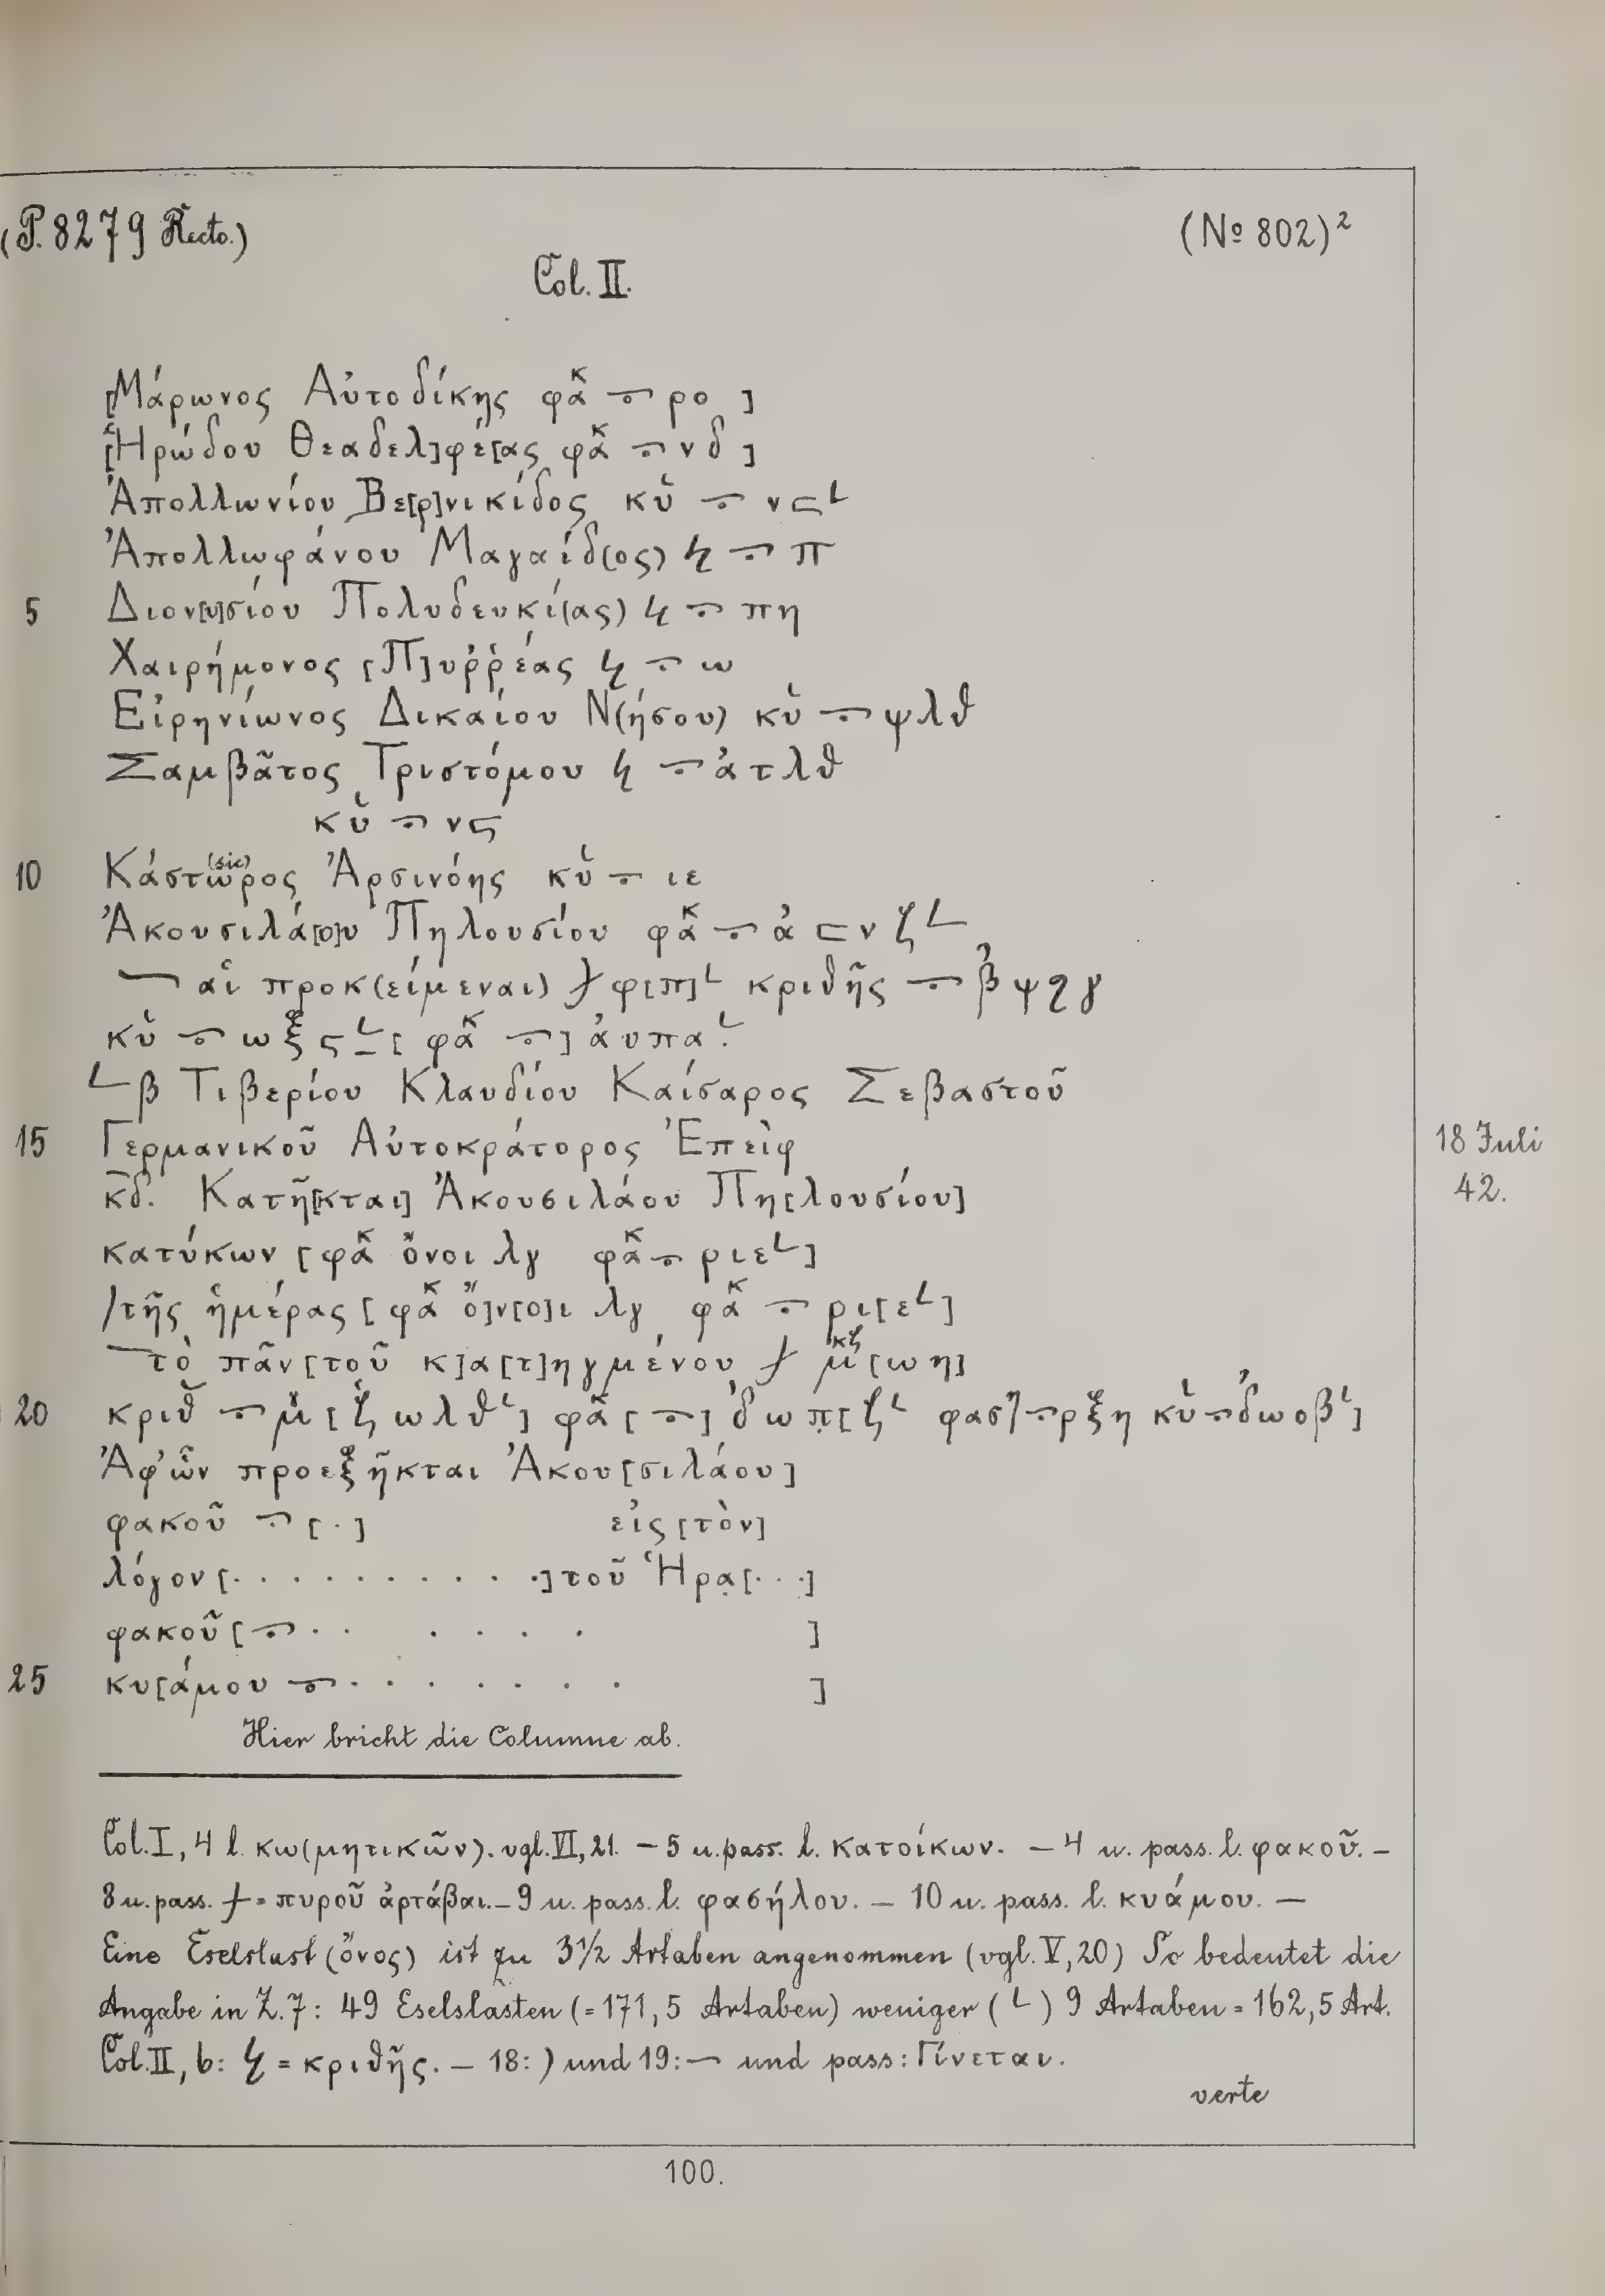 (P. 8279 Recto.)
(No 802)²
Col. II.
[Μάρωνος Αὐτοδίκης φακ ⲻ ρο ]
[Ἡρώδου Θεαδελ]φε[ίας φακ ⲻ νδ ]
Ἀπολλωνίου Βε[ρ]νικίδος κὐ ⲻ νϛ𐅵
Ἀπολλωφάνου Μαγαίδ(ος) ϟ ⲻ π
5 Διον[υ]σίου Πολυδευκί(ας) ϟ ⲻ πη
Χαιρήμονος [Π]υῤῥέας ϟ ⲻ ω
Εἰρηνίωνος Δικαίου Ν(ήσου) κὐ ⲻ ψλθ
Σαμβᾶτος Τριστόμου ϟ ⲻ ἀτλθ
κὐ ⲻ νϛ
10 Κάστω(sic)ρος Ἀρσινόης κὐ ⲻ ιε
Ἀκουσιλά[ο]υ Πηλουσίου φακ ⲻ ἀ ⊏ νζ 𐅵
— αἱ προκ(είμεναι) 𐆃 φ[π]𐅵 κριθῆς ⲻ β ψϙγ
κὐ ⲻ ωξϛ𐅵 [ φακ ⲻ ] ἀυπα𐅵
𐅹β Τιβερίου Κλαυδίου Καίσαρος Σεβαστοῦ
15 Γερμανικοῦ Αὐτοκράτορος Ἐπεὶφ
18 Juli
42.
κδ. Κατῆ[κται] Ἀκουσιλάου Πη[λουσίου]
κατύκων [φακ ὄνοι λγ φακ ⲻ ριε𐅵]
/τῆς ἡμέρας [ φακ ὄ]ν[ο]ι λγ φακ ⲻ ρι[ε𐅵]
— τὸ πᾶν [τοῦ κ]α[τ]ηγμένου 𐆃 μκζ [ωη]
20 κριθ ⲻ μ [ζ ωλθ𐅵] φακ [ ⲻ ] δωπ[ζ𐅵 φασή ⲻ ρξη κὐ ⲻ δωοβ𐅵]
Ἀφ’ὧν προεξῆκται Ἀκου[σιλάου]
φακοῦ ⲻ [ . ] εἰς [τὸν]
λόγον [. . . . . . . . . .] τοῦ Ἡρα[. . .]
φακοῦ [ ⲻ . . . . . . ]
25 κυ[άμου ⲻ . . . . . . . ]
Hier bricht die Columne ab.
Col. I, 4 l. κω(μητικῶν). vgl. VI, 21. – 5 u. pass. l. κατοίκων. – 4 u. pass. l. φακοῦ. –
8 u. pass. 𐆃 = πυροῦ ἀρτάβαι. – 9 u. pass. l. φασήλου. – 10 u. pass. l. κυάμου. –
Eine Eselslast (ὄνος) ist zu 3½ Artaben angenommen (vgl. V, 20) So bedeutet die
Angabe in Z. 7: 49 Eselslasten (= 171,5 Artaben) weniger ( 𐅹 ) 9 Artaben = 162,5 Art.
Col. II, 6: ϟ = κριθῆς. – 18: ) und 19: — und pass: Γίνεται.
verte
100.